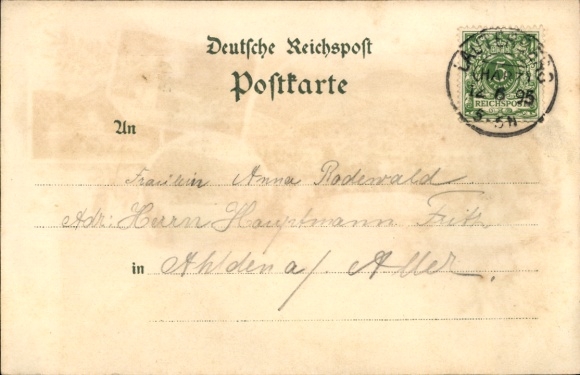 Deutsche Reichspost
Postkarte
LAUTERBERG
(HARZ)
12 6 95
5-6N
5
REICHSPOST
An
Fräulein Anna Rodewald
Adr: Herrn Hauptmann Fritz,
in Ahlden a/ Aller.